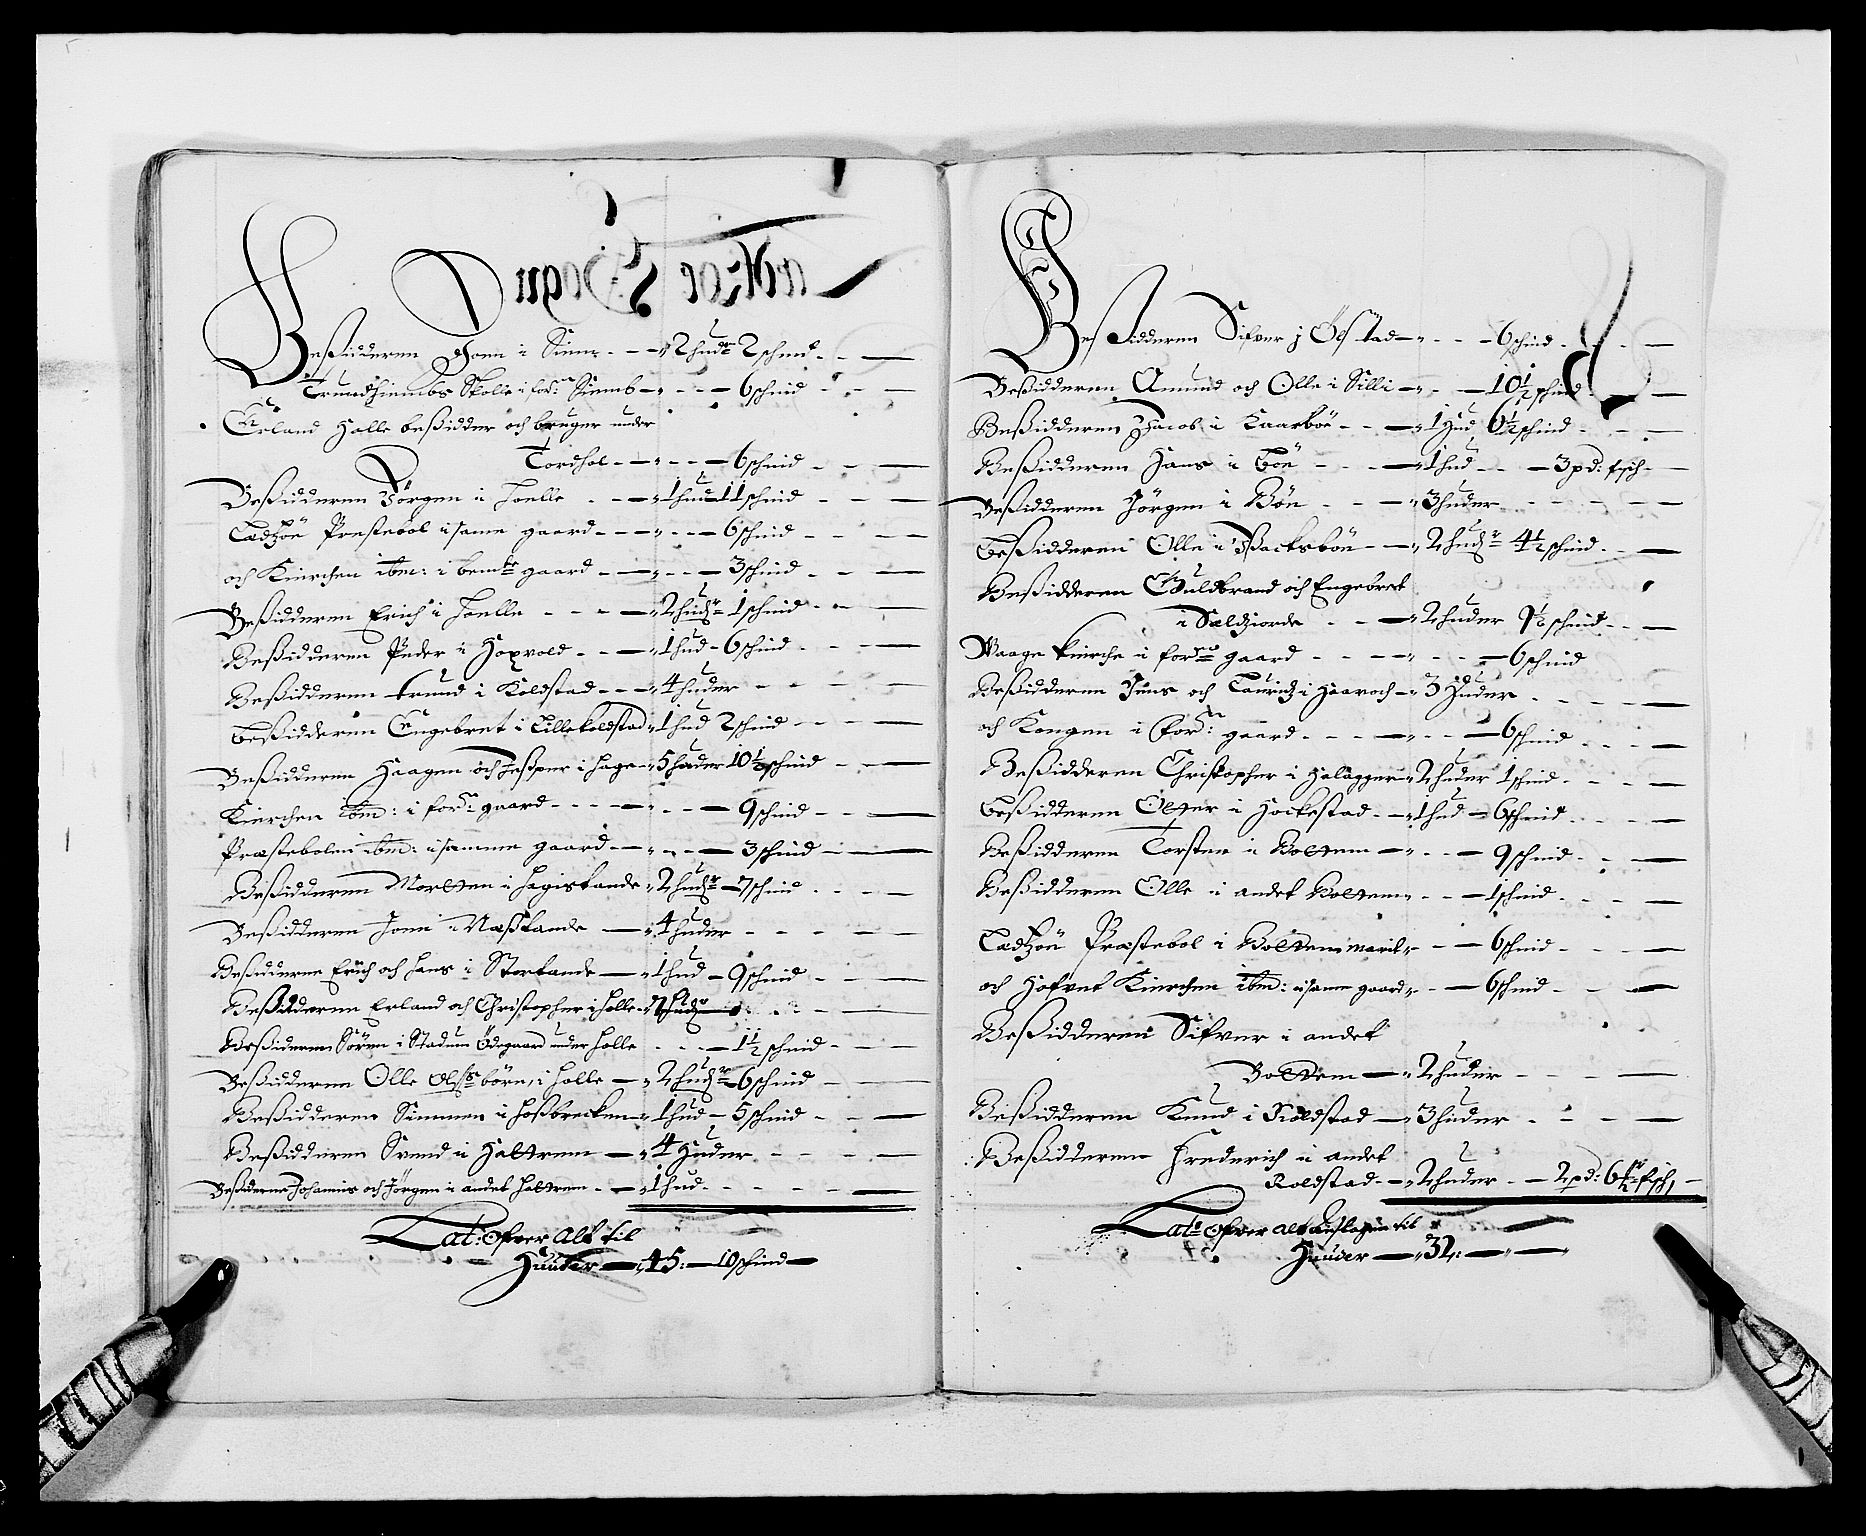 Beßidderen Joen i Sinne - - 2 hudr 2 schind
Trundhiembs Skolle i forne Sinnb - - 6 schind
Erland Holle beßidder och bruger under
Tordhol - - 6 schind
Beßidderen Jörgen i Loelle - - 1 hud 11 schind
Ladhoe Prestebol i same gaard - - 6 schind
och Kirchen ibm: i bemte gaard - - 3 schind
Beßidderen Erich i Loelle - - 2 hudr 1 schind
Beßidderen Peder i Hoxvold - - 1 hud - 6 schind
Beßidderen Trund i Koldstad - - 4 huder
Beßidderen Engebret i Lillekoldstad 1 hud 2 schind
Beßidderen Haagen och Jesper i Hage - 5 huder 10½ schind
Kirchen ibm: i forne gaard - - 9 schind
Præstebolen ibm: i samme gaard - - 3 schind
Beßidderen Morten i Hagistande 2 hudr - 7 schind
Beßidderen Joen i Næstande - 4 huder
Beßidderne Erich och Hans i Storlande - 1 hud - 9 schind
Beßidderen Erland och Christopher i Holle - 7 hudr
Beßideren Sören i Stadum Ödegaard under Holle - - 1½ schind
Beßidderen Olle Olss börn, i Holle - 2 hudr 6 schind
Beßidderen Simmen i Hoßbrecken - 1 hud - 5 schind
Beßidderen Svend i Haltren - 4 Huder
Beßiderne Johannis och Jörgen i andet Haltren - - 1 hud
Lat: Ofver Alt til
Huuder - 45: - 10 schind
Beßidderen Sifver i Ölstad - - 6 schind
Beßidderen Amund och Olle i Silli - - 10½ schind
Beßidderen Jacob i Kaarböe - - 1 Hud 6½ schind
Beßidderen Hans i Böe - - 1 hud - - 3 pd: fisch
Beßidderen Jörgen i Böe - - 3 huder
Beßidderen Olle i Backeböe - - 2 hudr 4½ schind
Beßidderen Guldbrand och Engebret
i Selduiorde - - 2 huder 9½ schind
Waage Kirche i forne gaard - - 6 schind
Beßidderen Jens och Lauridz i Haaroch - 3 Huder
och Kongen i forne gaard - - 6 schind
Beßidderen Christopher i Holagger - 2 huder 1 schind
Beßidderen Olfer i Hockestad - - 1 hud - 6 schind
Beßidderen Torsten i Boltten - - 9 schind
Beßidderen Olle i andet Boltten - - 1 schind
Ladhoe Præstebol i Bolttenmarit - - 6 schind
och Hofvet Kirchen ibm: i same gaard - - 6 schind
Beßidderen Sifver i andet
Boltten - 2 huder
Beßidderen Knud i Roldstad - 3 huder
Beßidderen Frederich i andet
Roldstad - - 2 huder - - 2 pd: 6½ fisch
Lat: Ofver alt til
Huuder - 32: